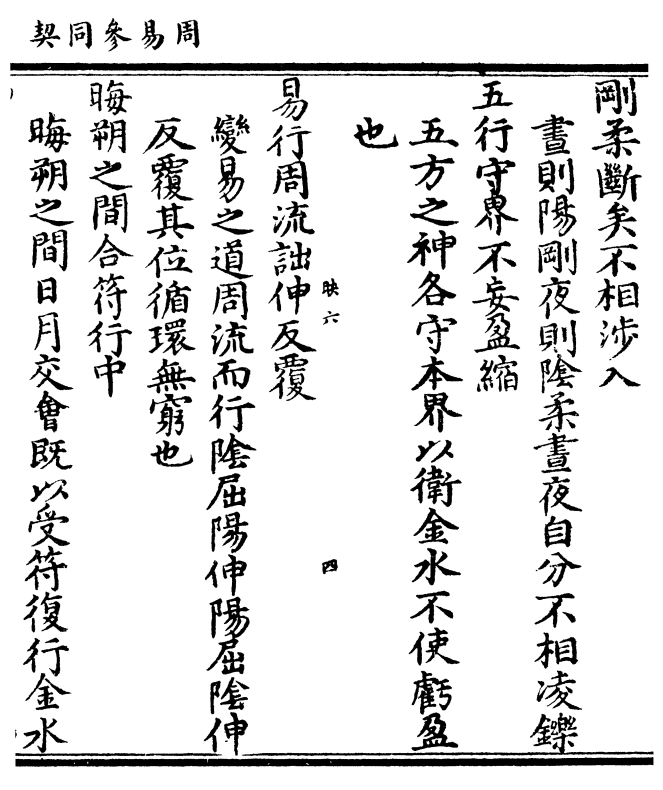 周易參同契
剛柔斷矣不相涉入
晝則陽剛夜則陰柔晝夜自分不相凌鑠
五行守界不妄盈縮
五方之神各守本界以衛金水不使虧盈
也
映六
四
易行周流詘伸反覆
變易之道周流而行陰屈陽伸陽屈陰伸
反覆其位循環無窮也
晦朔之間合符行中
晦朔之間日月交會既以受符復行金水